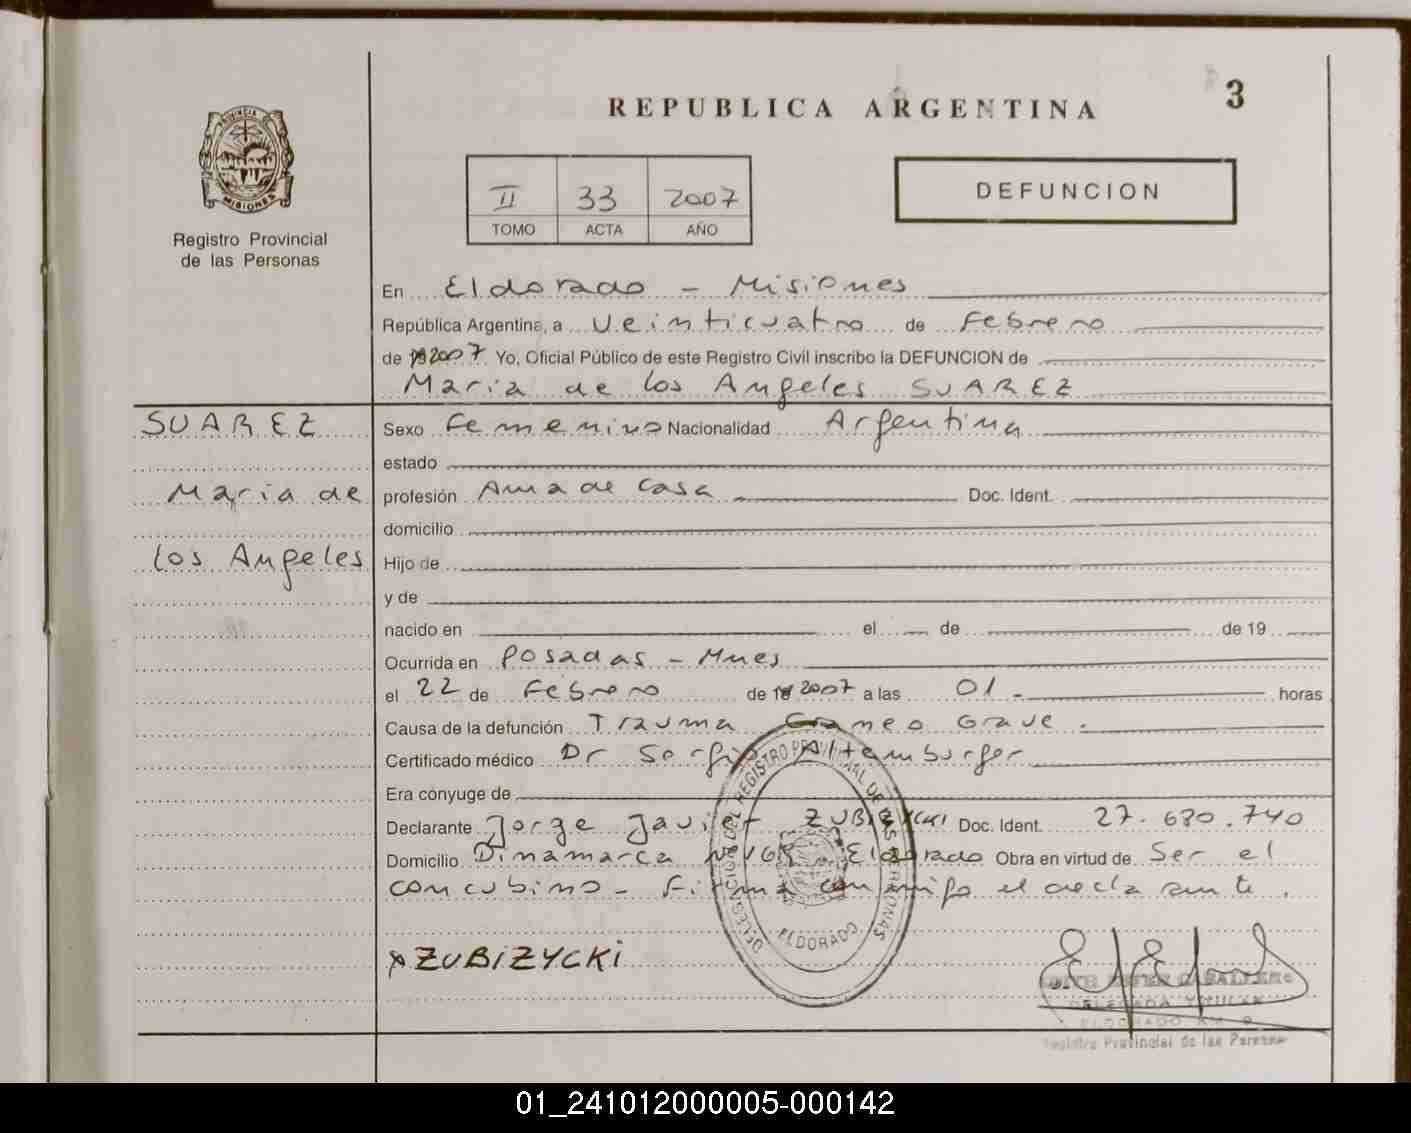 3
REPUBLICA ARGENTINA
PROVINCIA DE
MISIONES
Registro Provincial
de las Personas
II 33 2007
TOMO ACTA AÑO
DEFUNCION
En Eldorado - Misiones
República Argentina, a Veinticuatro de Febrero
de 2007 Yo, Oficial Público de este Registro Civil inscribo la DEFUNCION de
Maria de los Angeles SUAREZ
SUAREZ
Maria de
los Angeles
Sexo Femenino Nacionalidad Argentina
estado
profesión Ama de Casa Doc. Ident.
domicilio
Hijo de
y de
nacido en el de de 19
Ocurrida en Posadas - Mnes
el 22 de Febrero de 2007 a las 01 - horas
Causa de la defunción Trauma Craneo Grave.
Certificado médico Dr Sergio Altemburger
Era cónyuge de
Declarante Jorge Javier ZUBIZYCKI Doc. Ident. 27.680.740
Domicilio Dinamarca Eldorado Obra en virtud de Ser el
concubino - Firma conmigo el declarante.
x ZUBIZYCKI
DELEGACION DEL REGISTRO PROVINCIAL DE LAS PERSONAS
ELDORADO
CABALLERO
DELEGADA TITULAR
ELDORADO KM. 9
Registro Provincial de las Personas
01_241012000005-000142